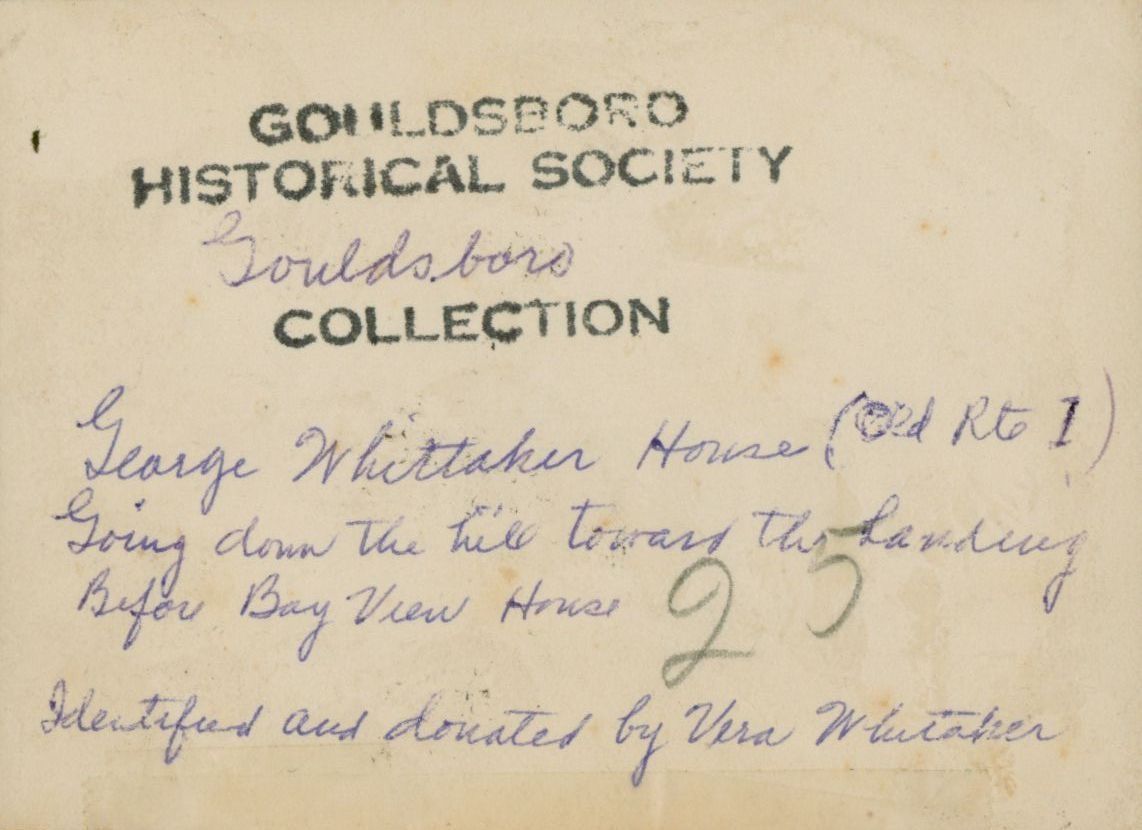 GOULDSBORO
HISTORICAL SOCIETY
Gouldsboro
COLLECTION
George Whittaker House (Old Rte 1)
Going down the hill toward the Landing
Before Bay View House
25
Identified and donated by Vera Whitaker